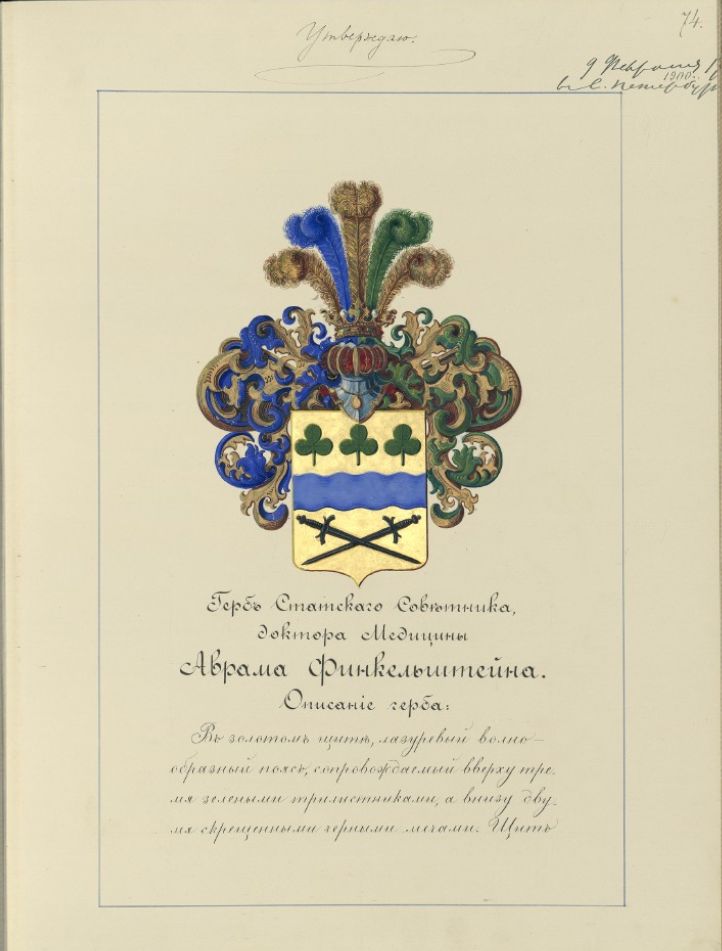 74.
Утверждаю.
9 Февраля
1900.
в С. Петербург
Гербъ Статскаго Совѣтника,
доктора Медицины
Аврама Финкельштейна.
Описаніе герба:
Въ золотомъ щитѣ, лазуревый волно-
образный поясъ, сопровождаемый вверху тре-
мя зелеными трилистниками, а внизу дву-
мя скрещенными черными мечами. Щитъ